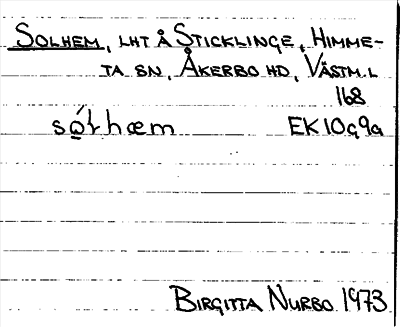 SOLHEM, LHT Å STICKLINGE, HIMME-
TA SN, ÅKERBO HD, VÄSTM. L
168
EK 10G9a
BIRGITTA NURBO 1973